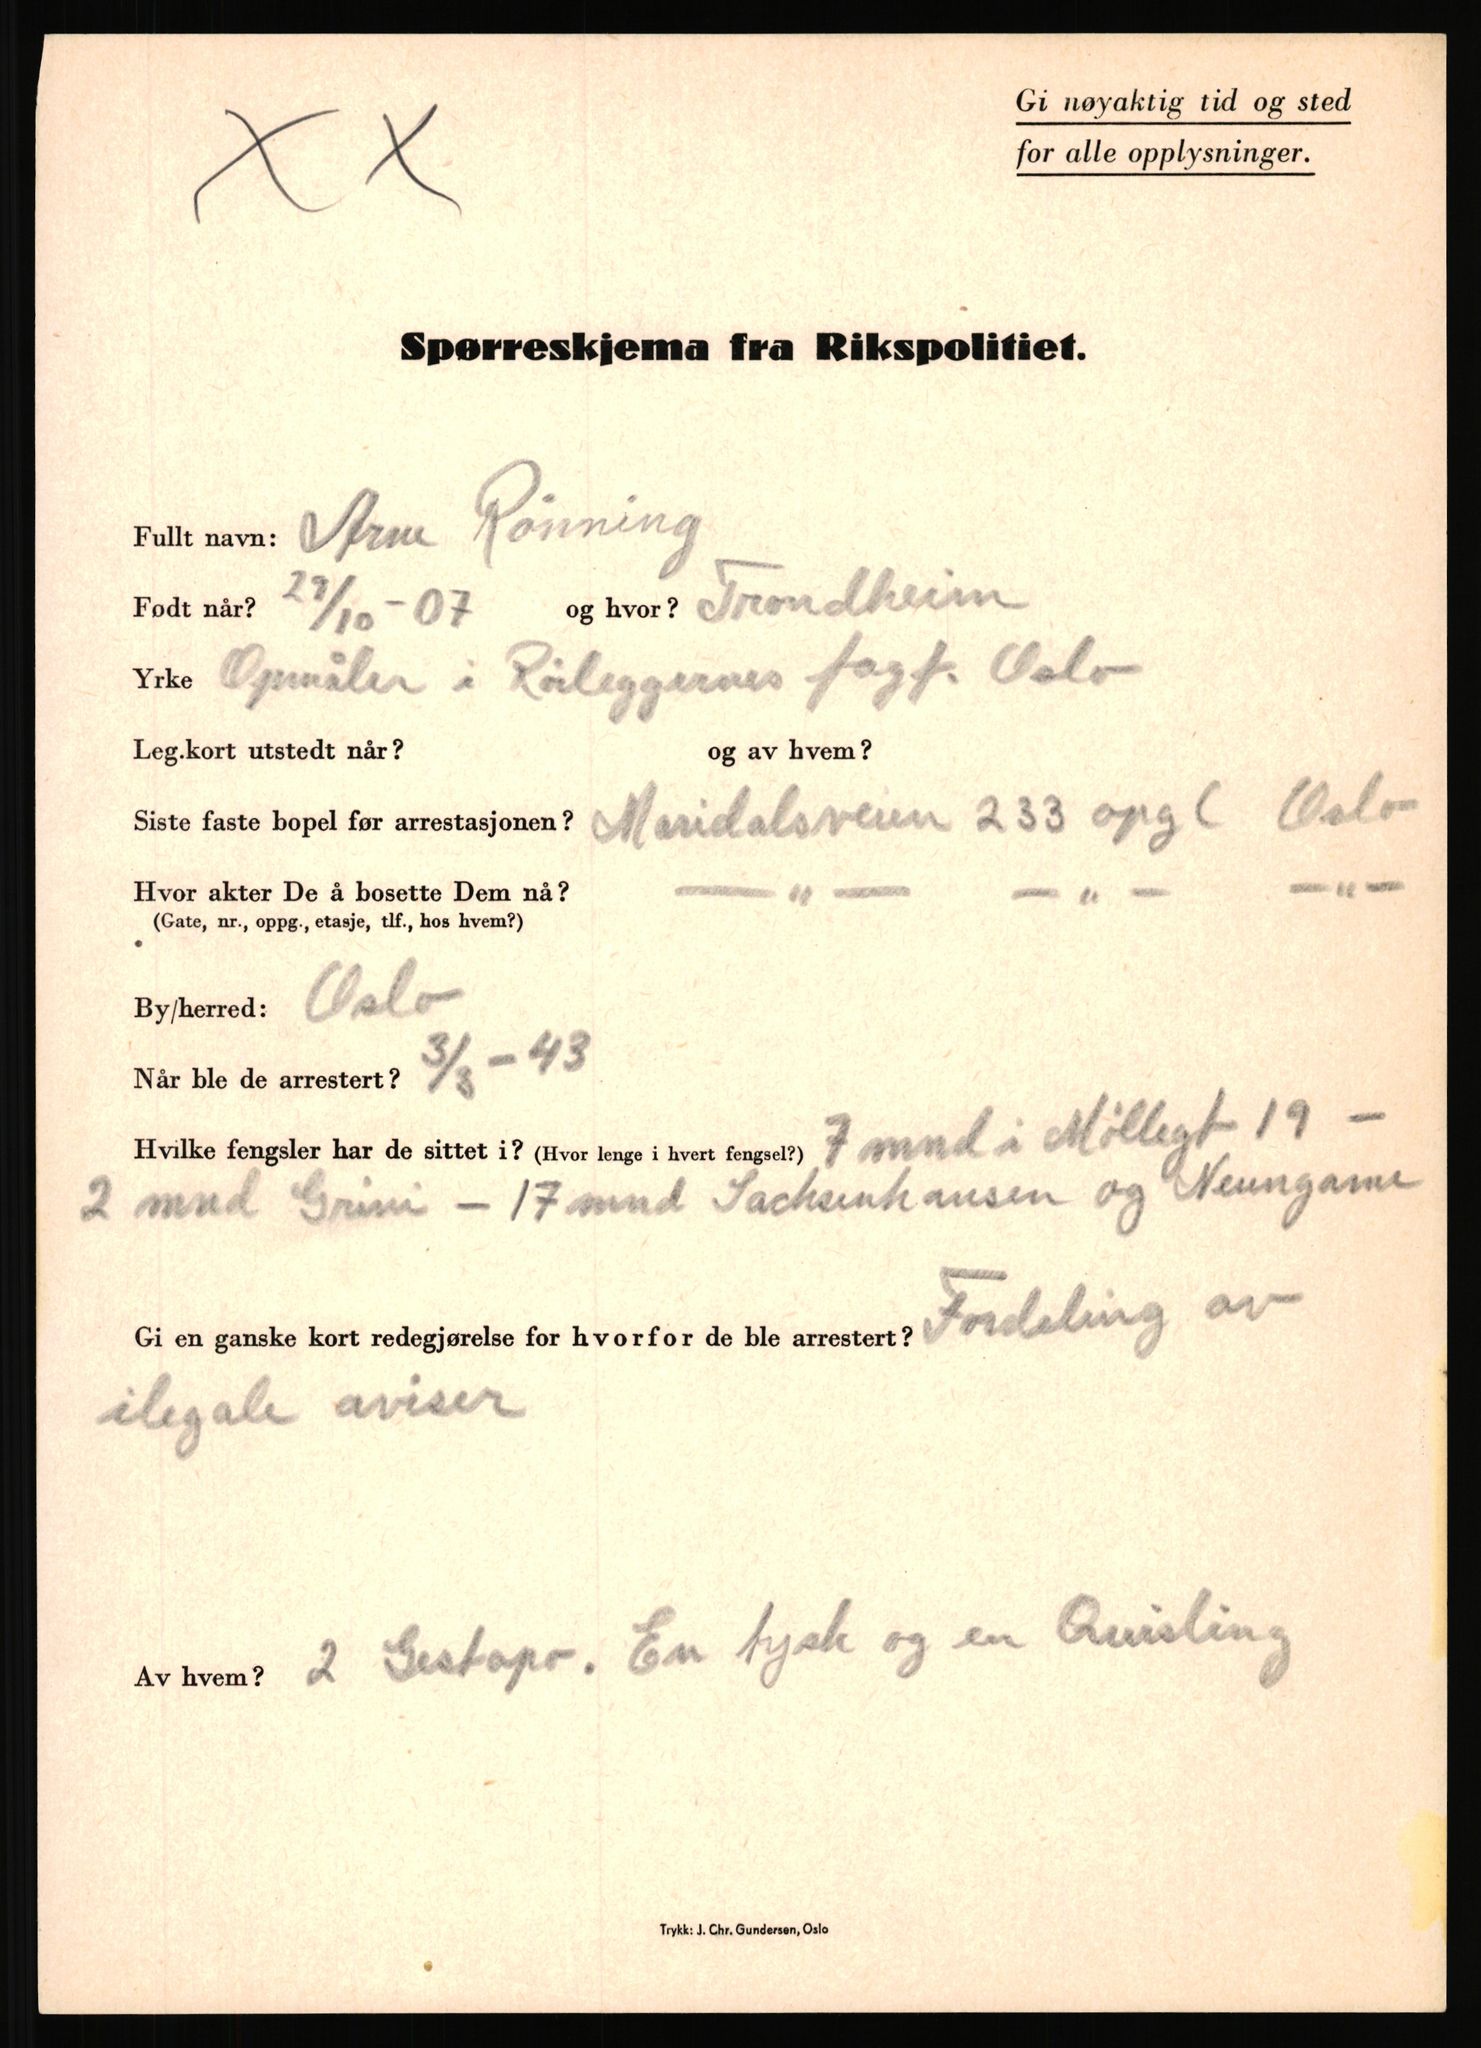 X X
Gi nøyaktig tid og sted
for alle opplysninger.
Spørreskjema fra Rikspolitiet.
Fullt navn: Arne Rönning
Født når? 29/10-07 og hvor? Trondheim
Yrke Opmåler i Rörleggernes fagf. Oslo
Leg.kort utstedt når? og av hvem?
Siste faste bopel før arrestasjonen? Maridalsveien 233 opg ( Oslo
Hvor akter De å bosette Dem nå? — " — — " — — " —
(Gate, nr., oppg., etasje, tlf., hos hvem?)
By/herred: Oslo
Når ble de arrestert? 3/3-43
Hvilke fengsler har de sittet i? (Hvor lenge i hvert fengsel?) 7 mnd i Möllegt 19 –
2 mnd Grini – 17 mnd Sachsenhausen og Neungame
Gi en ganske kort redegjørelse for hvorfor de ble arrestert? Fordeling av
ilegale aviser
Av hvem? 2 Gestapo. En tysk og en Quisling
Trykk: J. Chr. Gundersen, Oslo